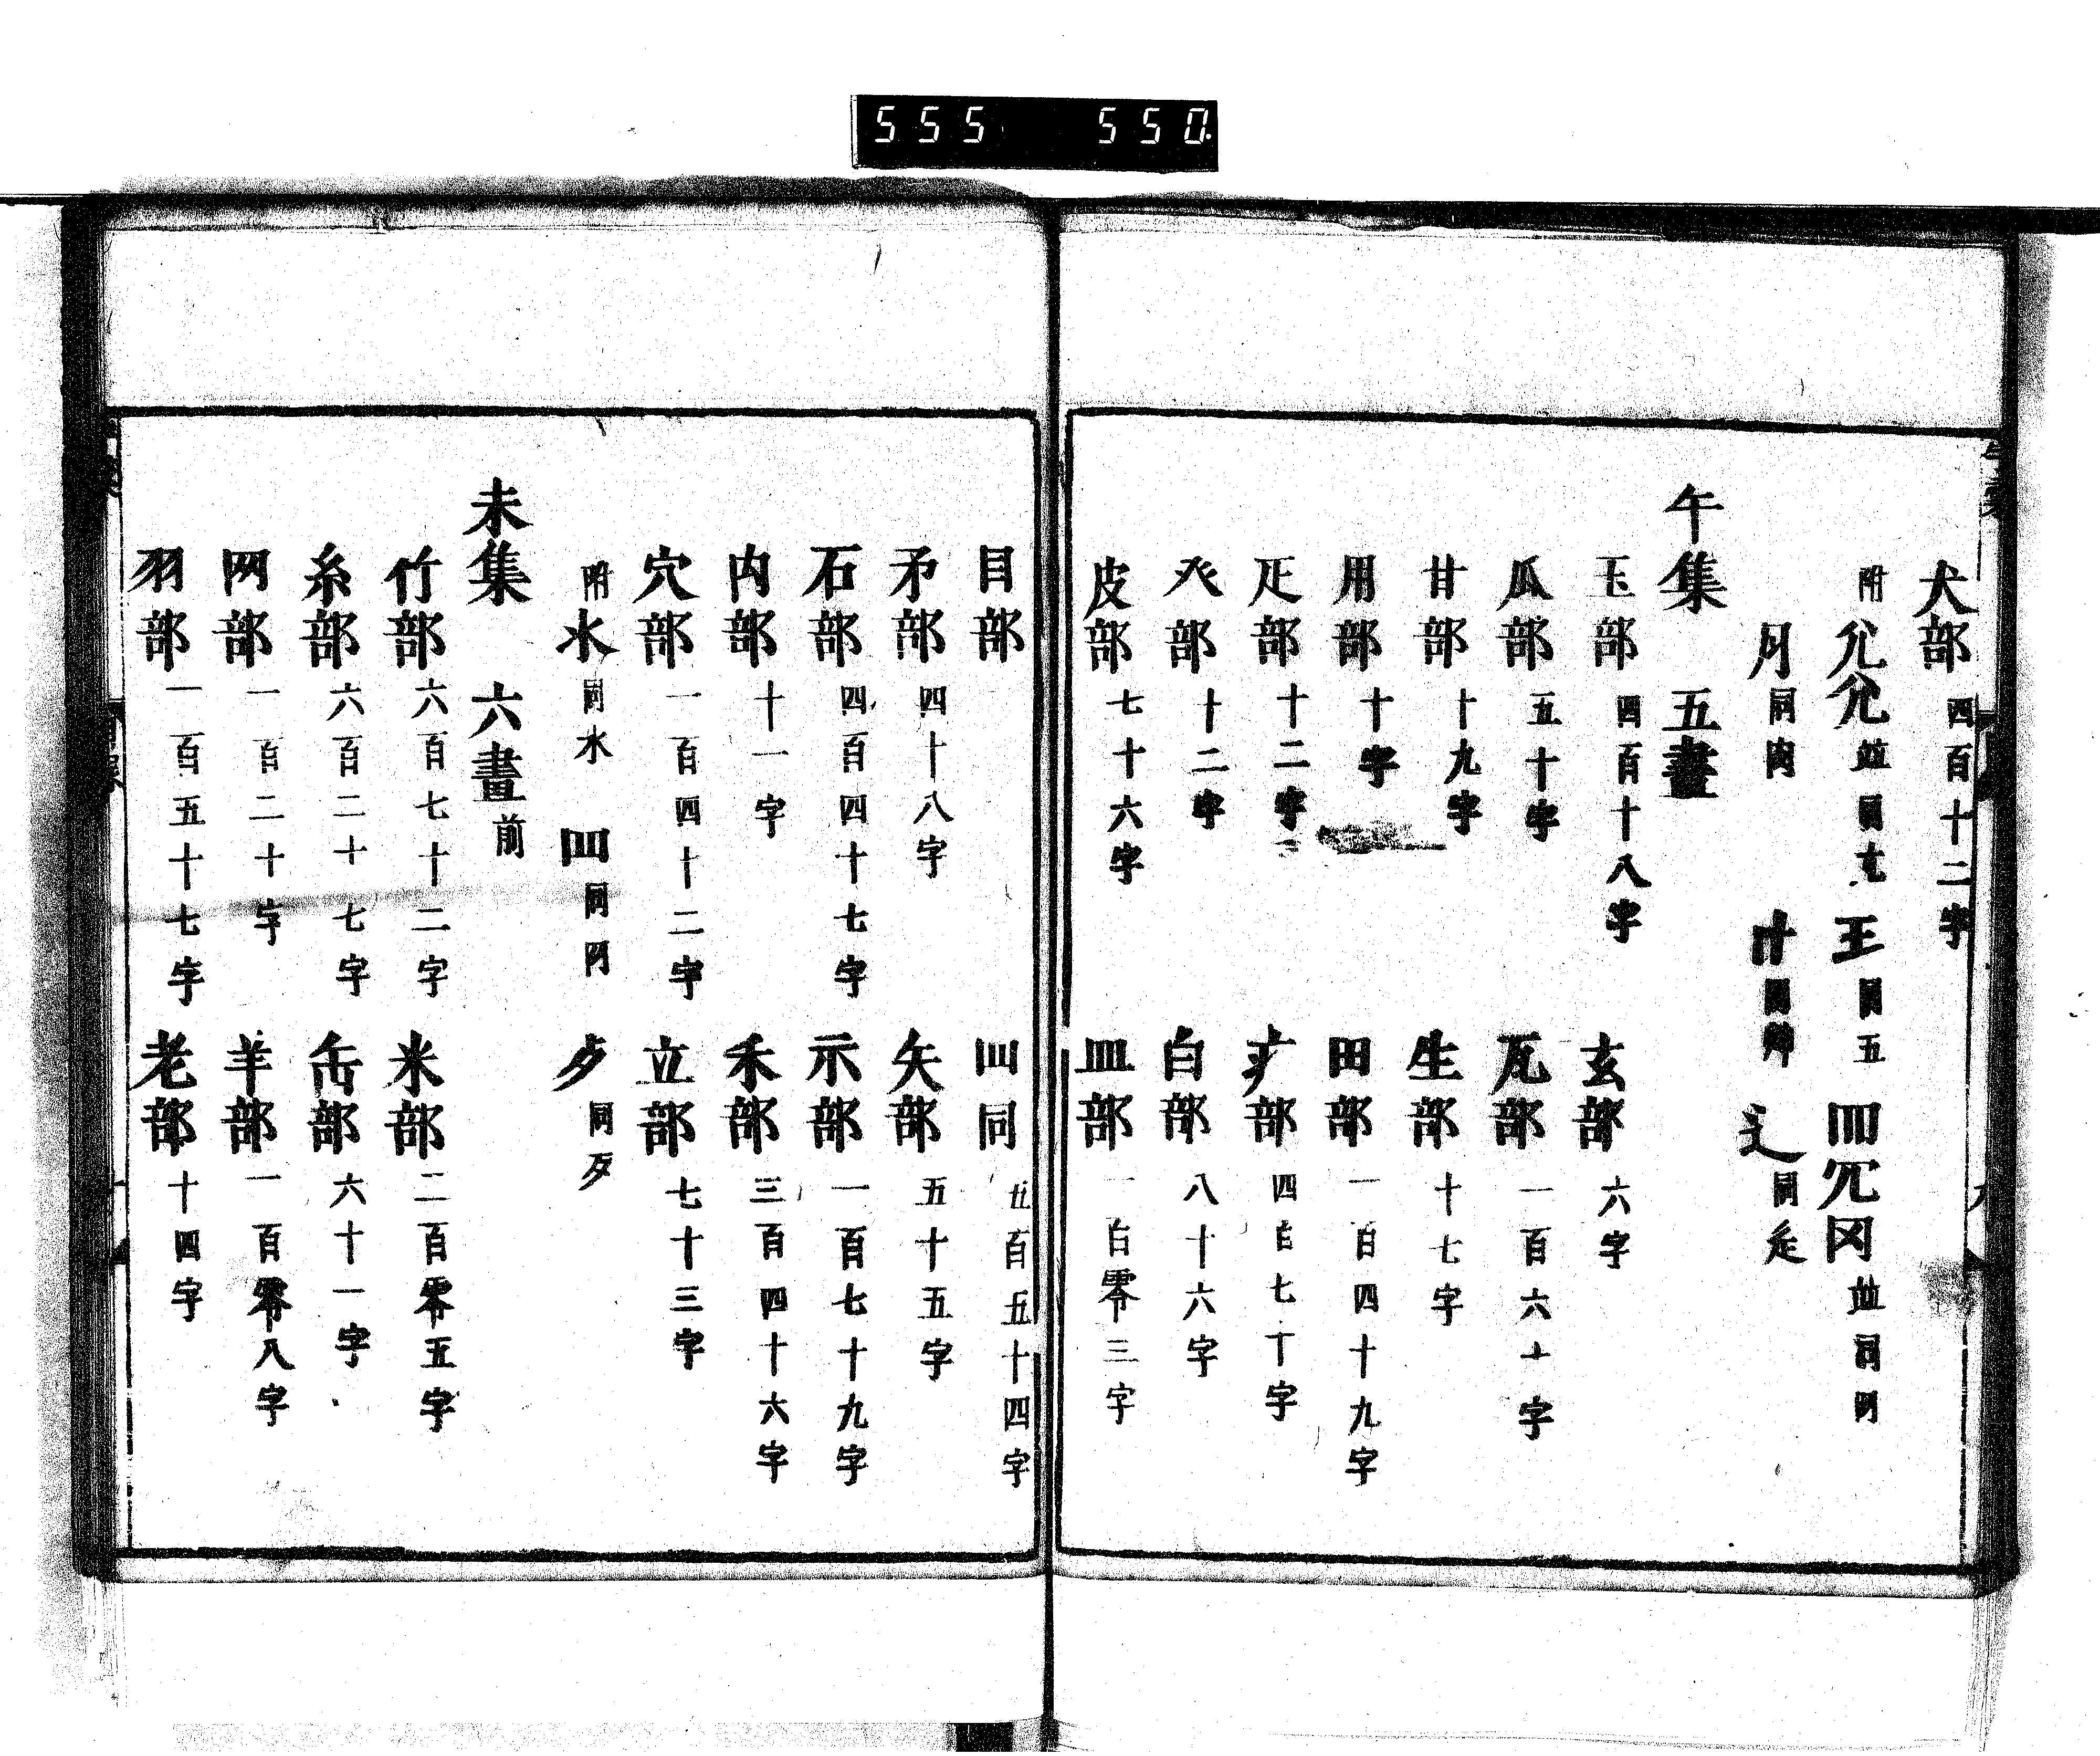 555 550
犬部 四百十二字
附 尣兊 竝同尢 王 同五 罒冗冈 竝同网
月 同肉 廾 同艸 辶 同辵
午集 五畫
玉部 四百十八字 玄部 六字
瓜部 五十字 瓦部 一百六十字
甘部 十九字 生部 十七字
用部 十字 田部 一百四十九字
疋部 十二字 疒部 四百七十字
癶部 十二字 白部 八十六字
皮部 七十六字 皿部 一百零三字
目部 罒同 五百五十四字
矛部 四十八字 矢部 五十五字
石部 四百四十七字 示部 一百七十九字
内部 十一字 禾部 三百四十六字
穴部 一百四十二字 立部 七十三字
附 氺 同水 罒 同网 歺 同歹
未集 六畫前
竹部 六百七十二字 米部 二百零五字
糸部 六百二十七字 缶部 六十一字
网部 一百二十字 羊部 一百零八字
羽部 一百五十七字 老部 十四字